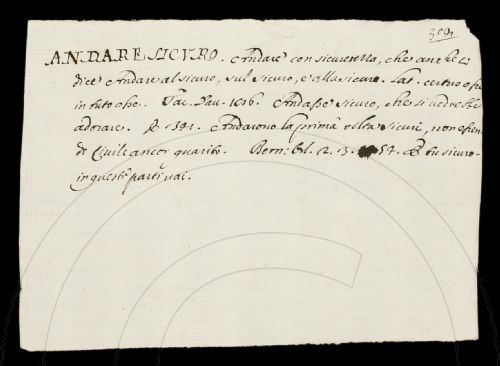 ANDARE SICVRO. Andare con sicurezza, che anche si
dice Andare al sicuro, sul sicuro, e alla sicura. Lat.
in tuto Tac. Dav. 1616. Andasse sicuro, che si vedrebbe
adorare. E 341. Andarono la prima volta sicuri, non essen-
do Civile ancor guarito. Bern: Orl. 2. 13. 54. E tu sicuro
in queste parti vai.